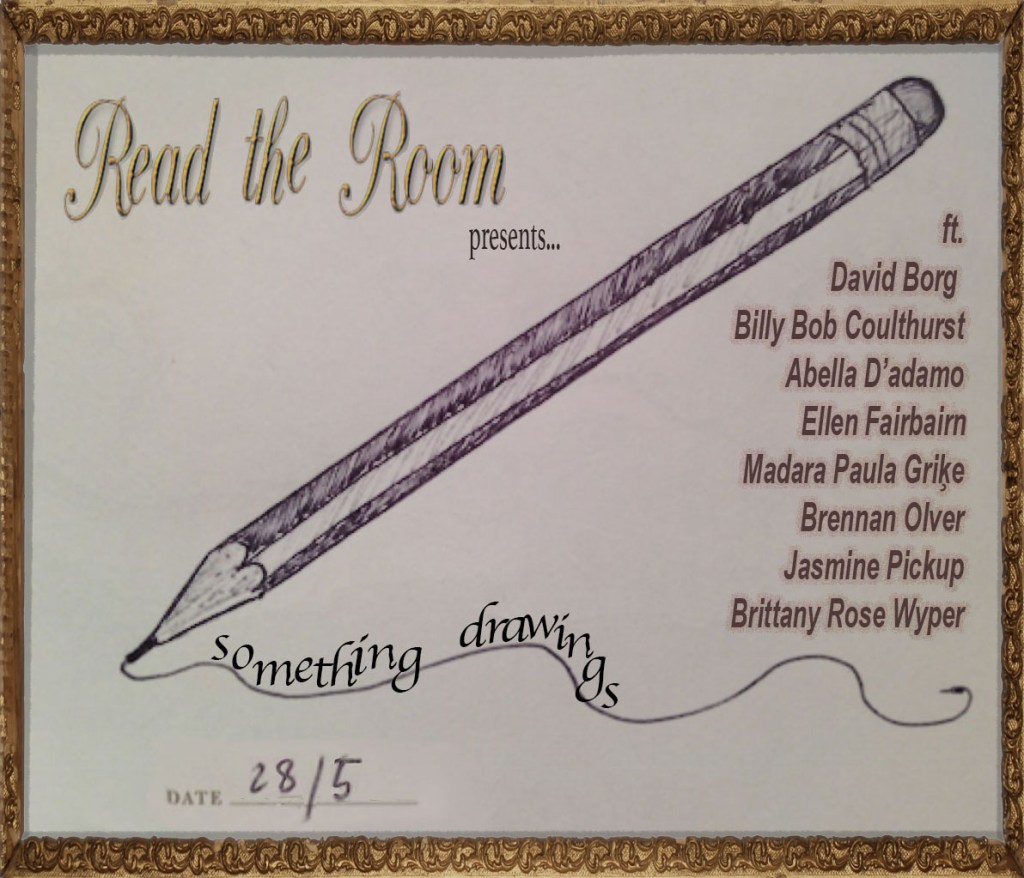 Read the Room
presents...
ft.
David Borg
Billy Bob Coulthurst
Abella D’adamo
Ellen Fairbairn
Madara Paula Griķe
Brennan Olver
Jasmine Pickup
Brittany Rose Wyper
something drawings
DATE 28/5